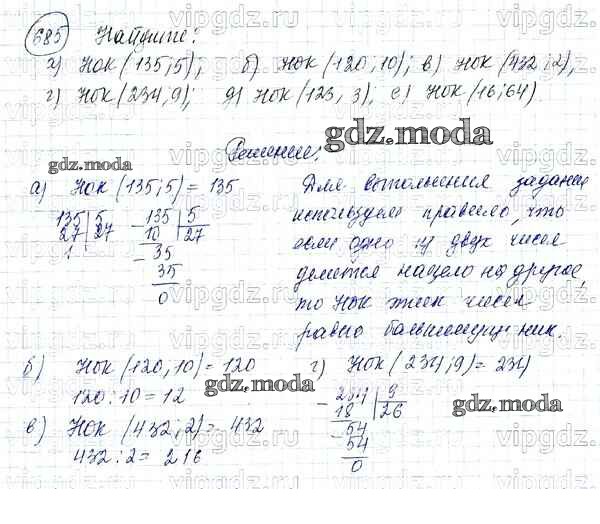 685 Найдите:
а) НОК(135;5); б) НОК(120;10); в) НОК(432;2);
г) НОК(234,9); д) НОК(123, 3); е) НОК(16;64)
Решение:
gdz.moda
gdz.moda
а) НОК(135;5) = 135
135 | 5
27 | 27
1
135 | 5
10 | 27
35
35
0
Для выполнения задания
используем правило, что
если одно из двух чисел
делится нацело на другое,
то НОК этих чисел
равно большему из них.
б) НОК(120,10) = 120
120:10 = 12
gdz.moda
в) НОК(432;2) = 432
432:2 = 216
г) НОК(234;9) = 234
234 | 9
18 | 26
54
54
0
gdz.moda
vipgdz.ru